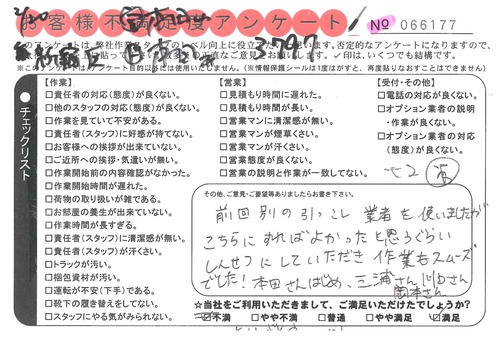 お客様不満足度アンケート
No 066177
このアンケートは、弊社作業スタッフのレベル向上に役立てたいと思います。否定的なアンケートになりますので、
※このアンケートは目的以外には使用いたしません。(※情報保護シールは1度はがすと、再度貼りなおすことはできません)
チェックリスト
【作業】
□責任者の対応(態度)が良くない。
□他のスタッフの対応(態度)が良くない。
□作業を見ていて不安がある。
□責任者(スタッフ)に好感が持てない。
□お客様への挨拶が出来ていない。
□ご近所への挨拶・気遣いが無い。
□作業開始前の内容確認がなかった。
□作業開始時間が遅れた。
□荷物の取り扱いが雑である。
□お部屋の養生が出来ていない。
□作業時間が長すぎる。
□責任者(スタッフ)に清潔感が無い。
□責任者(スタッフ)が汗くさい。
□トラックが汚い。
□梱包資材が汚い。
□運転が不安(下手)である。
□靴下の履き替えをしてない。
□スタッフにやる気がみられない。
【営業】
□見積もり時間に遅れた。
□見積もり時間が長い。
□営業マンに清潔感が無い。
□営業マンが煙草くさい。
□営業マンが汗くさい。
□営業態度が良くない。
□営業の説明と作業が一致してない。
【受付・その他】
□電話の対応が良くない。
□オプション業者の説明
・作業が良くない。
□オプション業者の対応
(態度)が良くない。
その他、ご意見・ご要望等ありましたらお書き下さい。
前回別の引っこし業者を使いましたが
こちらにすればよかったと思うぐらい
しんせつにしていただき作業もスムーズ
でした!本田さんはじめ、三浦さん
岡本さん
☆当社をご利用いただきまして、ご満足いただけたでしょうか?
□不満 □やや不満 □普通 □やや満足 □満足